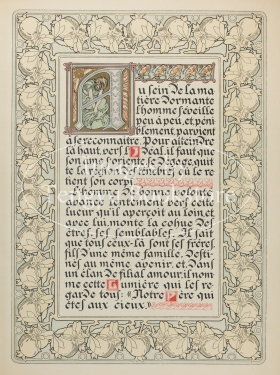 Au sein de la ma
tière dormante
l'homme s'éveille
peu à peu, et, péni
blement, parvient
à se reconnaitre. Pour atteindre
là haut vers l'Idéal, il faut que
son âme s'oriente, se dégage, quit
te la région des ténèbres où le re
tient son corps
L'homme de bonne volonté
avance lentement vers cette
lueur qu'il aperçoit au loin, et
avec lui, monte la cohue des
êtres, ses semblables. Il sait
que tous ceux-là sont ses frères,
fils d'une même famille, desti
nés au même avenir et, dans
un élan de filial amour, il nom
me cette Lumière qui les re
garde tous: «Notre Père qui
êtes aux cieux.»